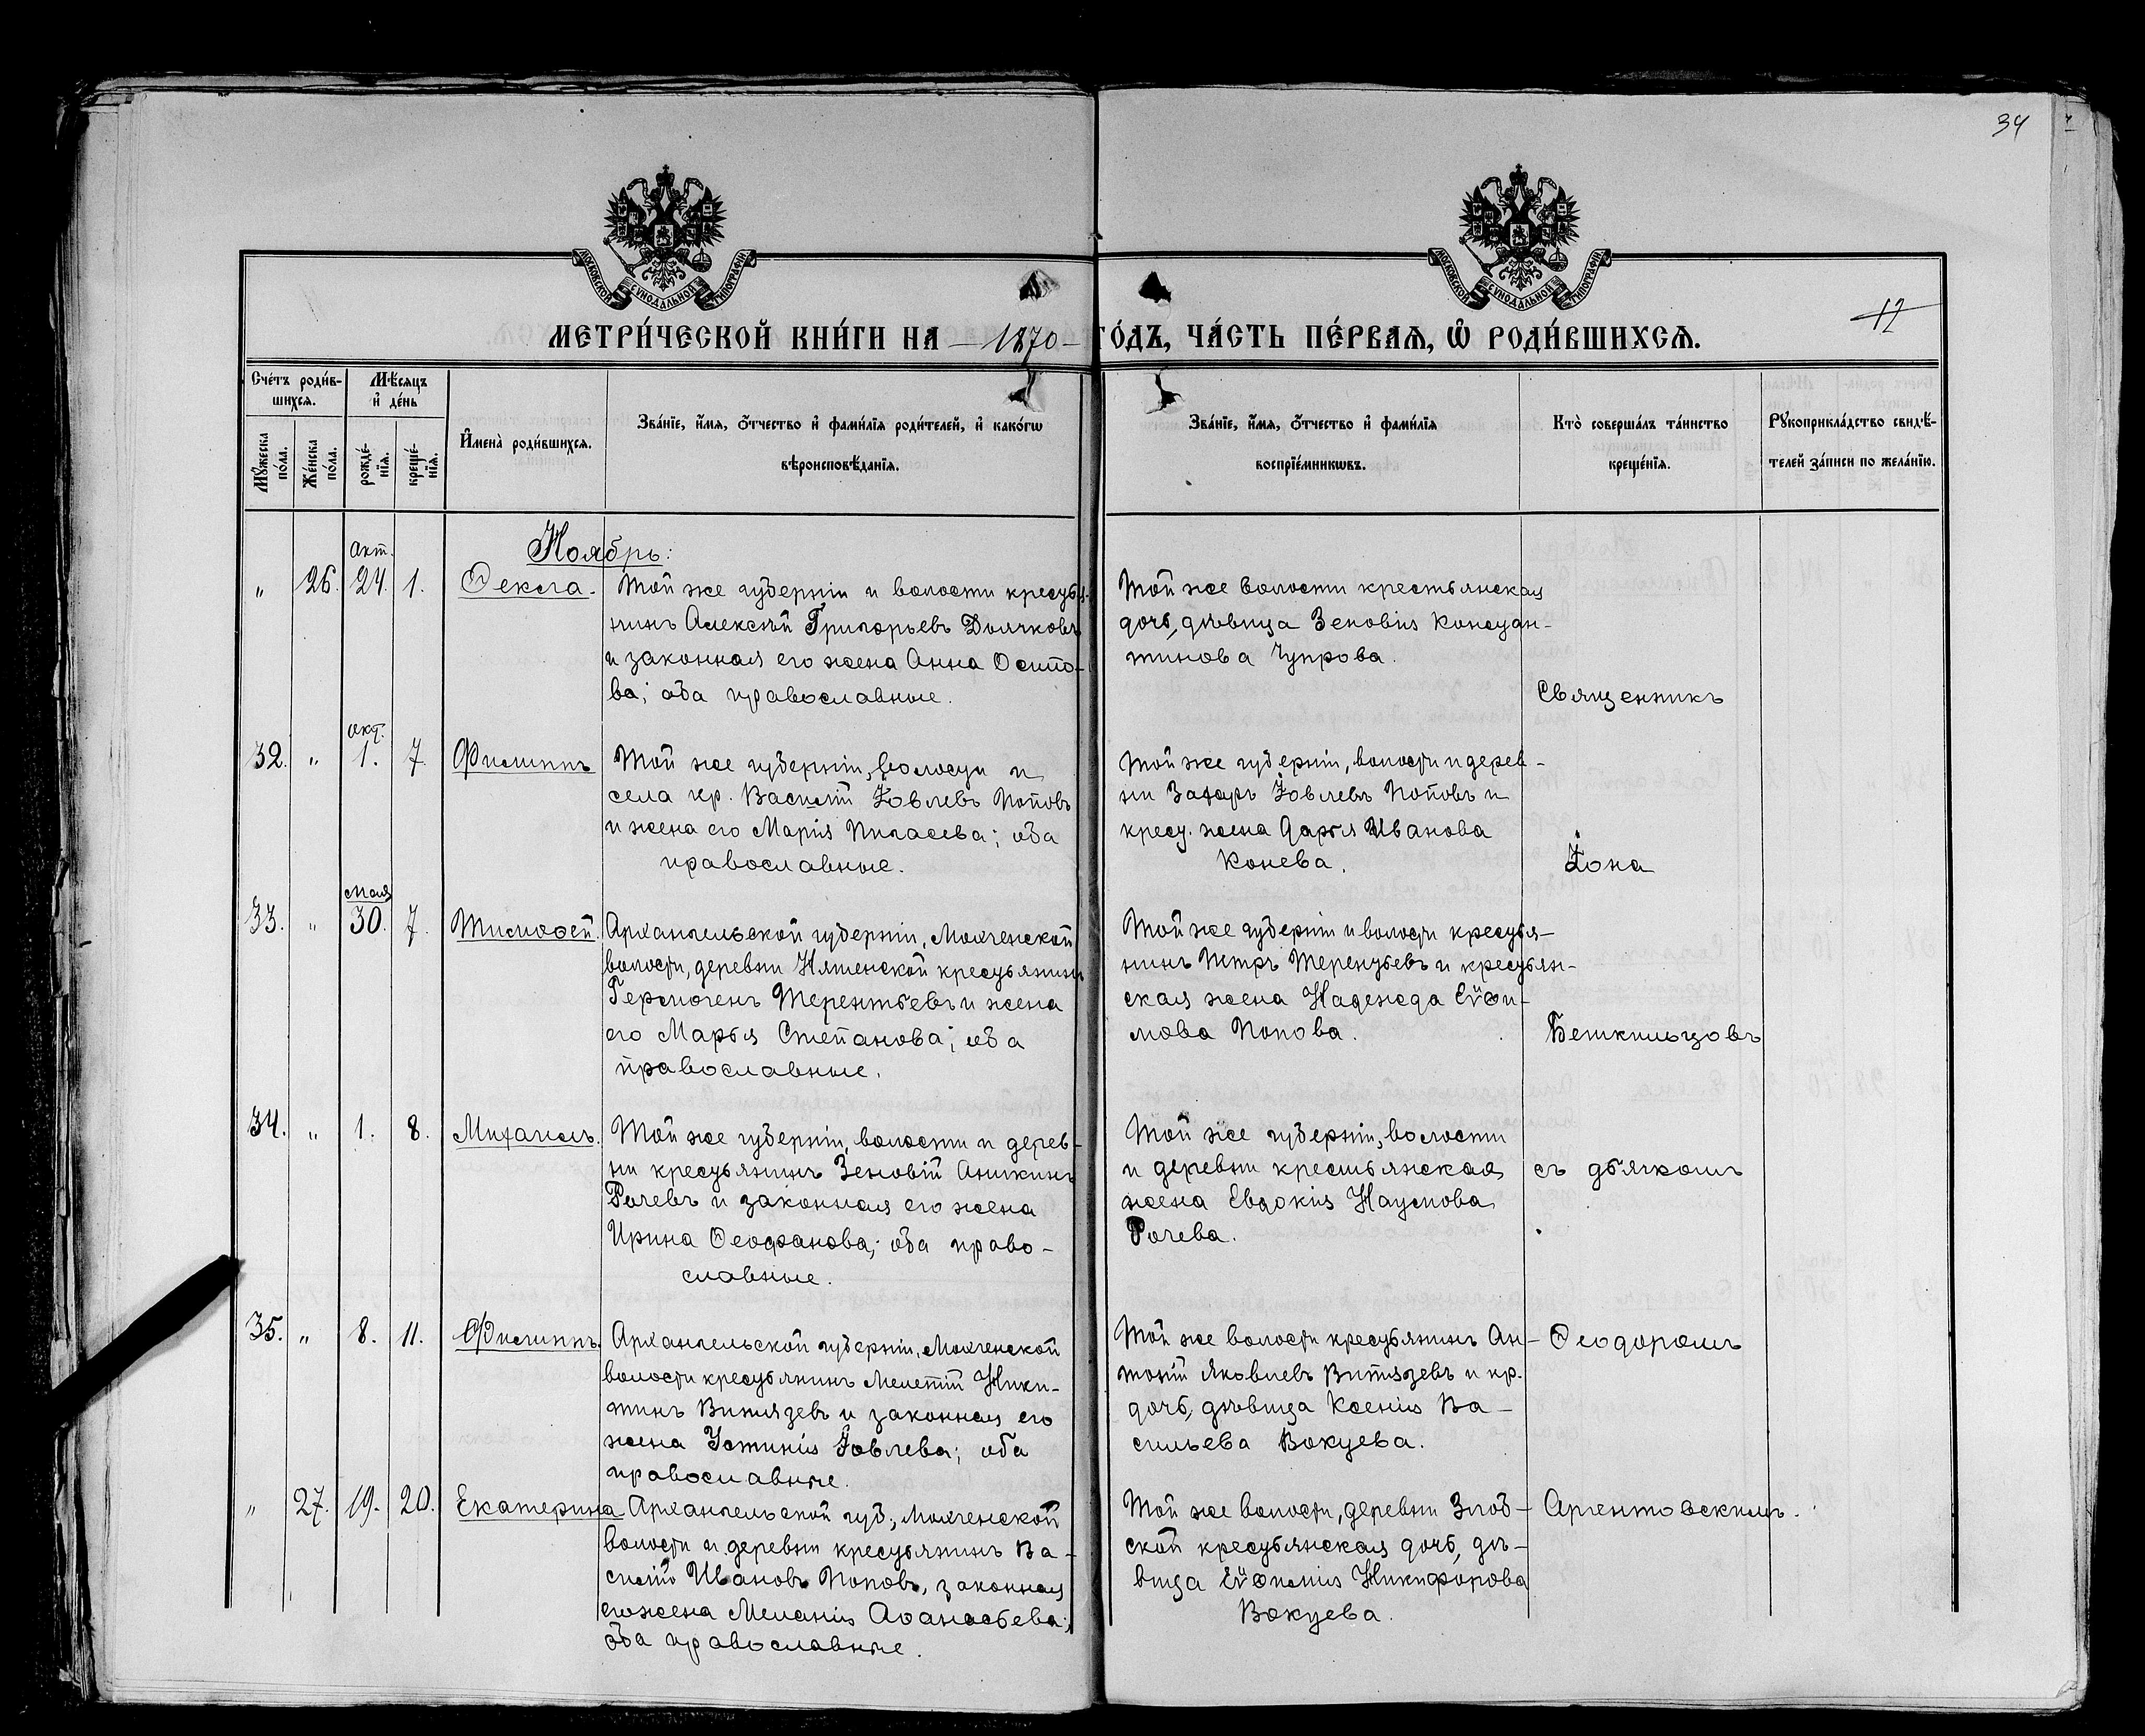 34
МОСКОВСКОЙ СѴНОДАЛЬНОЙ ТИПОГРАФІИ
МОСКОВСКОЙ СѴНОДАЛЬНОЙ ТИПОГРАФІИ
12
МЕТРИ́ЧЕСКОЙ КНИ́ГИ НА 1870 ГО́ДЪ, ЧА́СТЬ ПЕ́РВАѦ, Ѿ РОДИ́ВШИХСѦ.
Сче́тъ роди́в-
шихсѧ.
Мѣ́сѧцъ
и де́нь
Мꙋ́жеска по́ла.
Же́нска по́ла.
рожде́-нїѧ.
креще́-нїѧ.
Имена̀ роди́вшихсѧ.
Зва́нїе, и́мѧ, ѻ́тчество и фами́лїѧ роди́телей, и како́гѡ
вѣроисповѣ́данїѧ.
Зва́нїе, и́мѧ, ѻ́тчество и фами́лїѧ
воспрїе́мникѡвъ.
Кто̀ соверша́лъ та́инство
креще́нїѧ.
Рꙋкоприкла́дство свидѣ́-
телей за́писи по жела́нїю.
Ноябрь:
Окт.
" 26. 24. 1. Ѳекла.
Той же губерніи и волости крестья-
нинъ Алексѣй Григорьевъ Дьячковъ
и законная его жена Анна Осипо-
ва; оба православные.
Той же волости крестьянская
дочь, дѣвица Зеновія Констан-
тинова Чупрова.
Священникъ
окт.
32. " 1. 7. Филиппъ
Той же губерніи, волости и
села кр. Василій Іовлевъ Поповъ
и жена его Марія Пигасева; оба
православные.
Той же губерніи, волости и дерев-
ни Захаръ Іовлевъ Поповъ и
крест. жена Дарья Иванова
Конева.
Іона
мая
33. " 30. 7. Тимоѳей.
Архангельской губерніи, Мохченской
волости, деревни Няшенской крестьянинъ
Гермогенъ Терентьевъ и жена
его Марья Степанова; оба
православные.
Той же губерніи и волости крестья-
нинъ Петръ Терентьевъ и крестьян-
ская жена Надежда Еѵѳи-
мова Попова.
Бешкильцовъ
34. " 1. 8. Михаилъ.
Той же губерніи, волости и дерев-
ни крестьянинъ Зеновій Аникинъ
Рочевъ и законная его жена
Ирина Ѳеофанова; оба право-
славные.
Той же губерніи, волости
и деревни крестьянская
жена Евдокія Наумова
Рочева.
съ дьякомъ
35. " 8. 11. Филиппъ.
Архангельской губерніи, Мохченской
волости крестьянинъ Мелетій Ники-
тинъ Витязевъ и законная его
жена Устинія Іовлева; оба
православные.
Той же волости крестьянинъ Ан-
тоній Яковлевъ Витязевъ и кр.
дочь, дѣвица Ксенія Ва-
сильева Вокуева.
Ѳеодоромъ
" 27. 19. 20. Екатерина
Архангельской губ., Мохченской
волости и деревни крестьянинъ Ва-
силій Ивановъ Поповъ, законная
его жена Меланія Аѳанасьева;
оба православные.
Той же волости, деревни Злоб-
ской крестьянская дочь, дѣ-
вица Еѵѳимія Никифорова
Вокуева.
Аргентовскимъ.